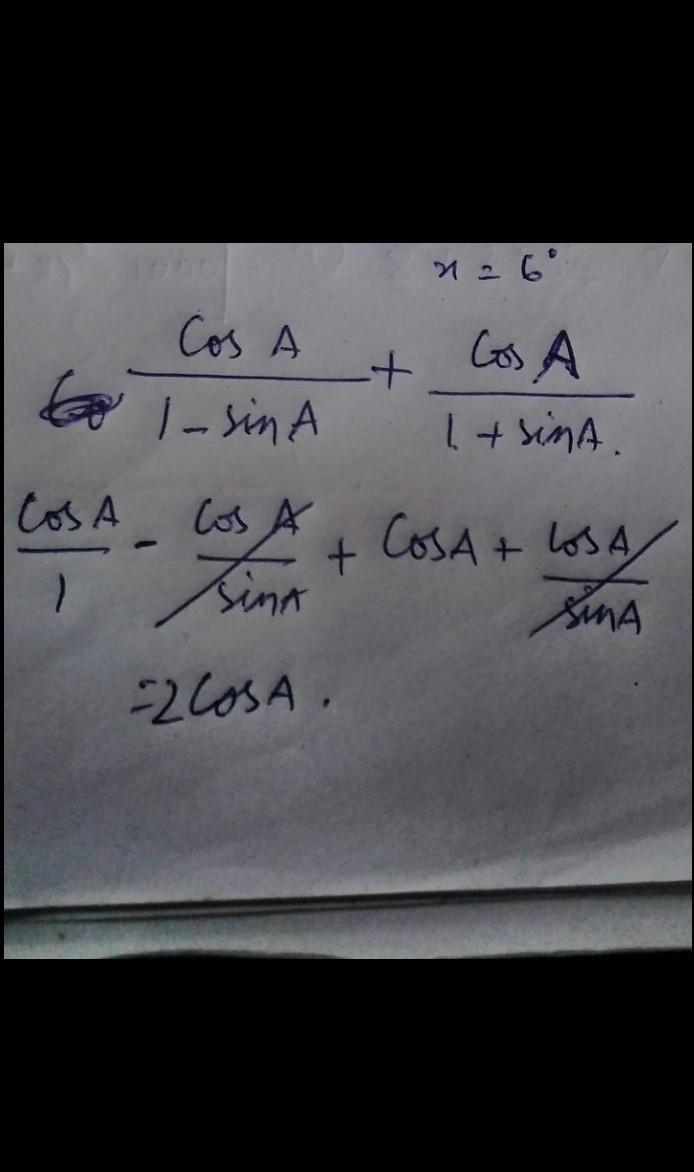 x = 6°
Cos A / 1 - sin A + Cos A / 1 + sin A.
Cos A / 1 - Cos A / sin A + Cos A + Cos A / sin A
= 2 Cos A.